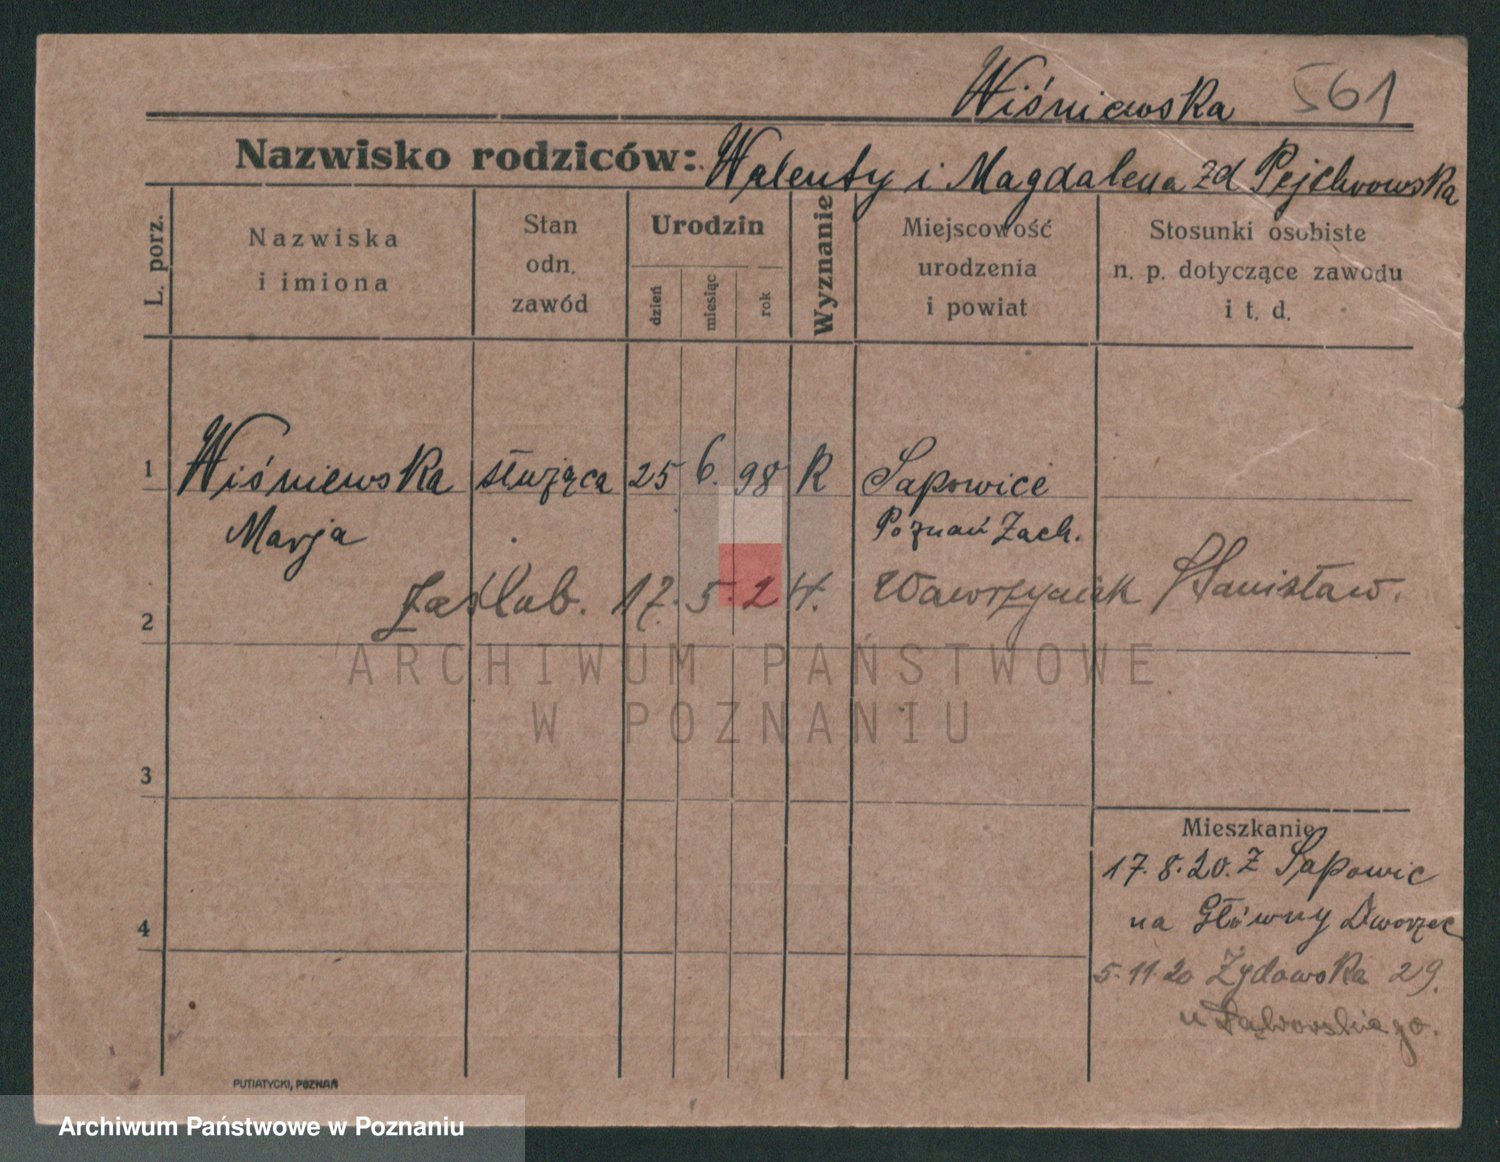 Wiśniewska 561
Nazwisko rodziców: Walenty i Magdalena zd Pejchrowska
L. porz.
Nazwiska
i imiona
Stan
odn.
zawód
Urodzin
dzień
miesiąc
rok
Wyznanie
Miejscowość
urodzenia
i powiat
Stosunki osobiste
n. p. dotyczące zawodu
i t. d.
1 Wiśniewska służąca 25 6. 98 R Sapowice
Marja Poznań Zach.
2 Zaślub. 17. 5. 24. Wawrzyniak Stanisław.
ARCHIWUM PAŃSTWOWE
W POZNANIU
3
Mieszkanie
17.8.20. z Sapowic
4 na Główny Dworzec
5.11.20 Żydowska 29.
u
PUTIATYCKI, POZNAŃ
Archiwum Państwowe w Poznaniu